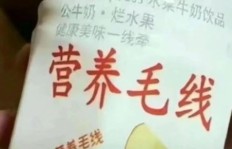 水果牛奶饮品
公牛奶·烂水果
健康美味一线牵
营养毛线
营养毛线